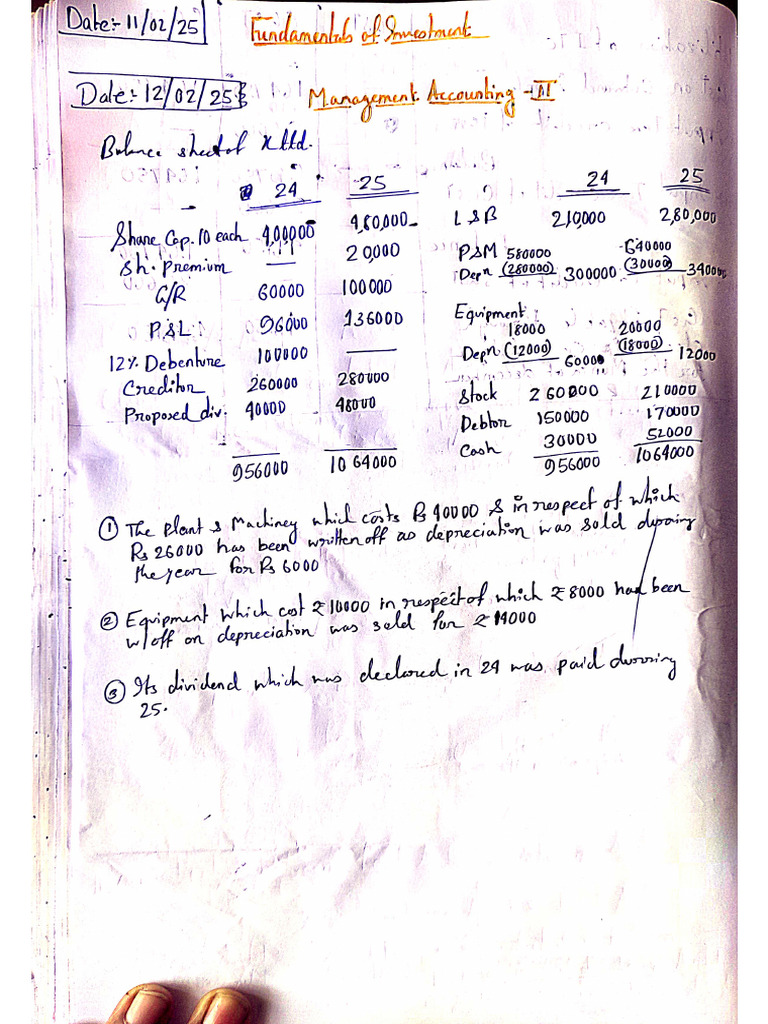 Date:- 11/02/25
Fundamentals of Investment
Date:- 12/02/25
Management Accounting - II
Balance sheet of X ltd.
24 25
Share Cap. 10 each 4,00,000 4,80,000
Sh. Premium — 20,000
G/R 60000 100000
P&L 96000 136000
12% Debenture 100000 —
Creditor 260000 280000
Proposed div. 40000 48000
956000 1064000
24 25
L&B 210000 2,80,000
P&M 580000 640000
Depn (280000) 300000 (30000) 340000
Equipment
18000 20000
Depn (12000) 60000 (18000) 12000
Stock 260000 210000
Debtor 150000 170000
Cash 30000 52000
956000 1064000
① The Plant & Machiney which costs Rs 40000 & in respect of which
Rs 26000 has been written off as depreciation was sold during
the year for Rs 6000
② Equipment which cost ₹ 10000 in respect of which ₹ 8000 had been
w/off on depreciation was sold for ₹ 14000
③ Its dividend which was declared in 24 was paid during
25.